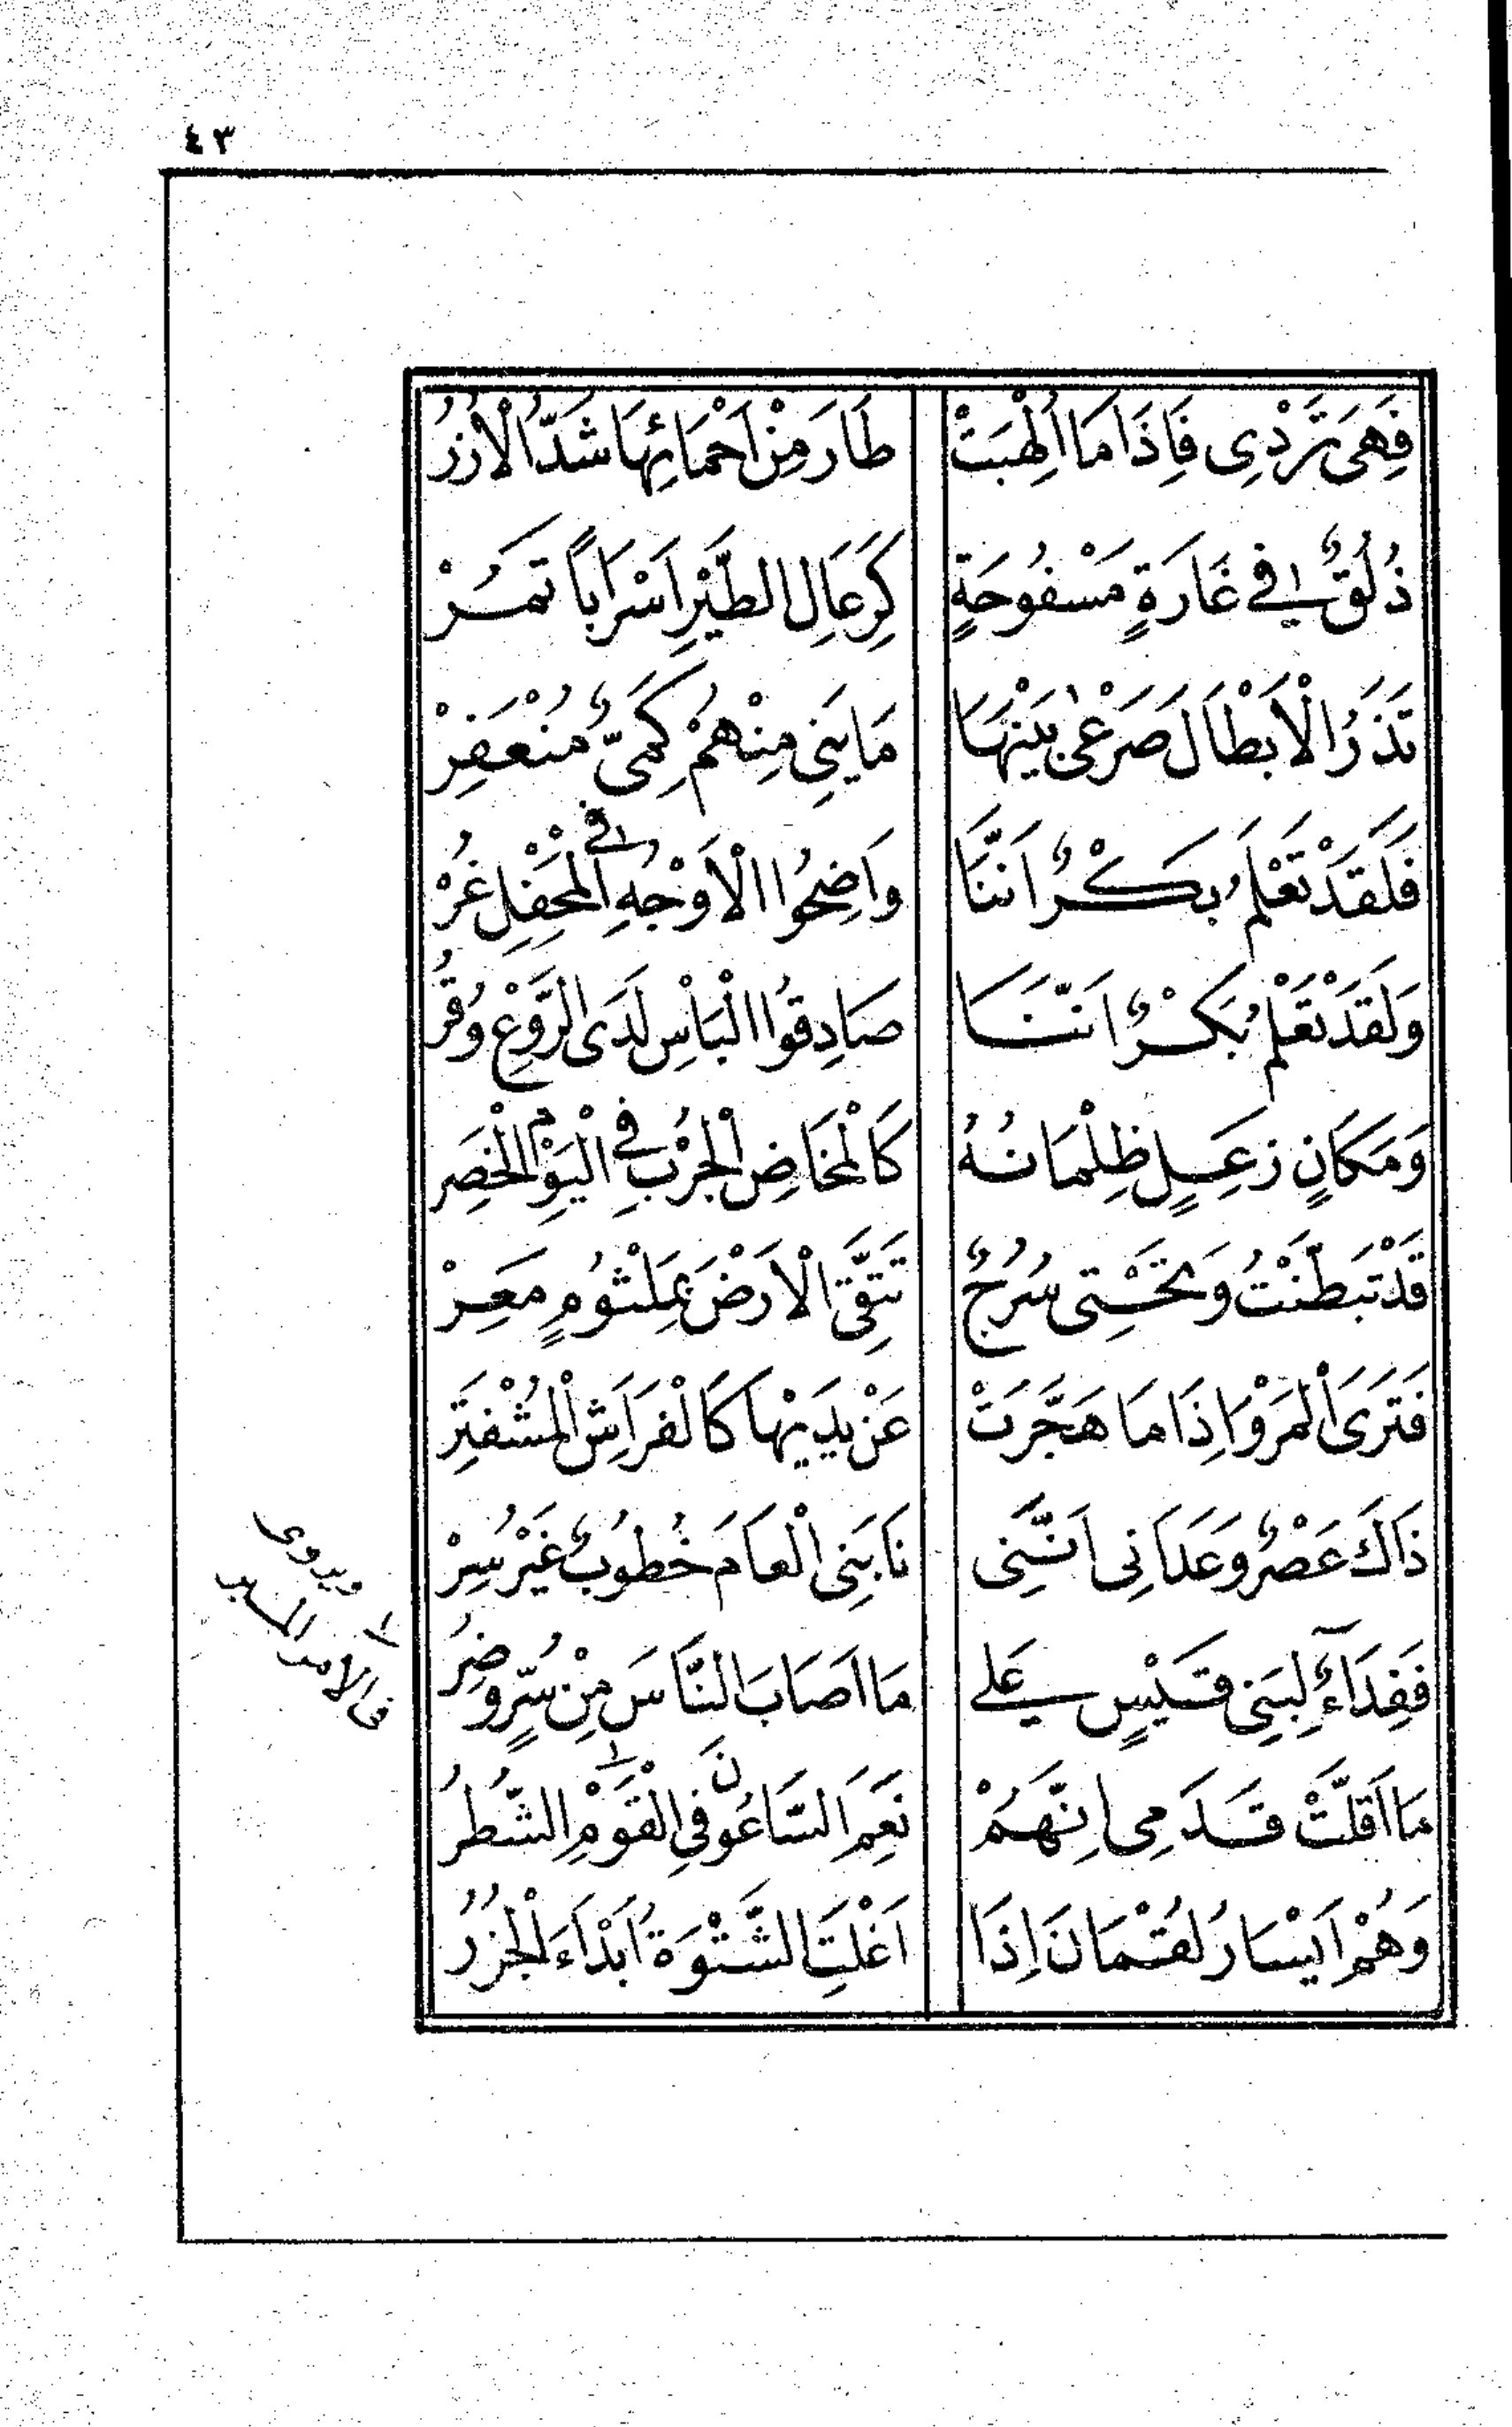 ٤٣
فَهِىَ تَرْدِى فَاِذَا مَا اُلْهِبَتْ طَارَ مِنْ اَحْمَائِهَا شَدُّ الْاُزُرْ
ذُلُقٌ فِى غَارَةٍ مَسْفُوحَةٍ كَرِعَالِ الطَّيْرِ اَسْرَاباً تَمُرْ
تَذَرُ الْاَبْطَالَ صَرْعٰى بَيْنَهَا مَا يَنِى مِنْهُمْ كَمِىٌّ مُنْعَفِرْ
فَلَقَدْ تَعْلَمُ بَكْرٌ اَنَّنَا وَاضِحُوا الْاَوْجُهِ فِى الْمَحْفِلِ غُرْ
وَلَقَدْ تَعْلَمُ بَكْرٌ اَنَّنَا صَادِقُوا الْبَاْسِ لَدَى الرَّوْعِ وُقُرْ
وَمَكَانٍ زَعِلٍ ظِلْمَانُهُ كَالْمَخَاضِ الْجُرْبِ فِى الْيَوْمِ الْخَصِرْ
قَدْ تَبَطَّنْتُ وَتَحْتِى سُرُحٌ تَتَّقِى الْاَرْضَ بِمَلْثُومٍ مَعِرْ
فَتَرَى الْمَرْوَ اِذَا مَا هَجَّرَتْ عَنْ يَدَيْهَا كَالْفَرَاشِ الْمُشْفَتِرْ
ذَاكَ عَصْرٌ وَعَدَانِى اَنَّنِى نَابَنِى الْعَامَ خُطُوبٌ غَيْرُ سِرْ
فَفِدَآءٌ لِبَنِى قَيْسٍ عَلَى مَا اَصَابَ النَّاسَ مِنْ سُرٍّ وَضُرْ
مَا اَقَلَّتْ قَدَمِى اِنَّهُمْ نَعِمَ السَّاعُونَ فِى الْقَوْمِ الشُّطُرْ
وَهُمُ اَيْسَارُ لُقْمَانَ اِذَا اَغْلَتِ الشَّتْوَةُ اَبْدَآءَ الْجُزُرْ
١ ويروى
فى الامر المبر